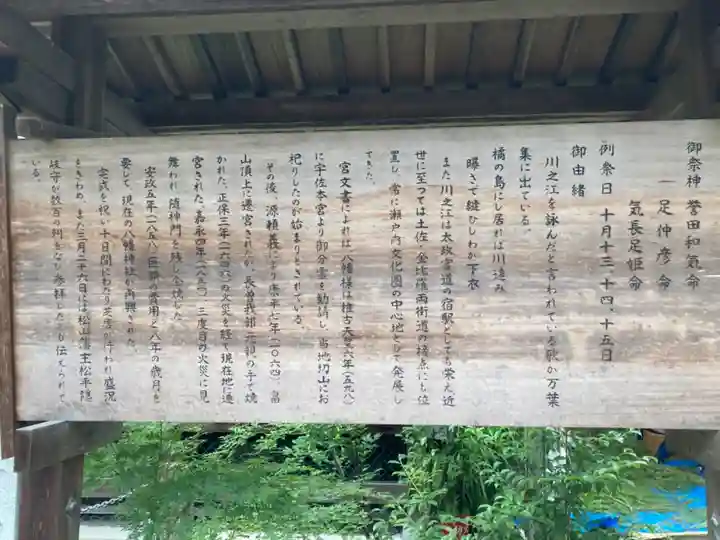 御祭神　誉田和気命
足仲彦命
気長足姫命
例祭日　十月十三、十四、十五日
御由緒
川之江を詠んだと言われている歌が万葉
集に出ている。
橘の島にし居れば川遠み
曝さで縫ひしわが下衣
また川之江は太政官道の宿駅としても栄え近
世に至っては土佐、金比羅両街道の接点にも位
置し、常に瀬戸内文化圏の中心地として発展し
てきた。
宮文書によれば八幡様は推古天皇六年(五九八)
に宇佐本宮より御分霊を勧請し、当地切山にお
祀りしたのが始まりとされている。
その後、源頼義により康平七年(一〇六四)、畠
山頂上に遷宮されたが、長曽我部元親の手で焼
かれた。正保二年(一六四五)の火災を経て現在地に遷
宮された。嘉永四年(一八五一)三度目の火災に見
舞われ、随神門を残し全焼した。
安政五年(一八五八)巨額の費用と八年の歳月を
要して、現在の八幡神社が再興された。
完成を祝い十日間にわたり芝居が行われ盛況
をきわめ、また三月二十六日には松山藩主松平隠
岐守が数百の列をなし参拝したとも伝えられて
いる。